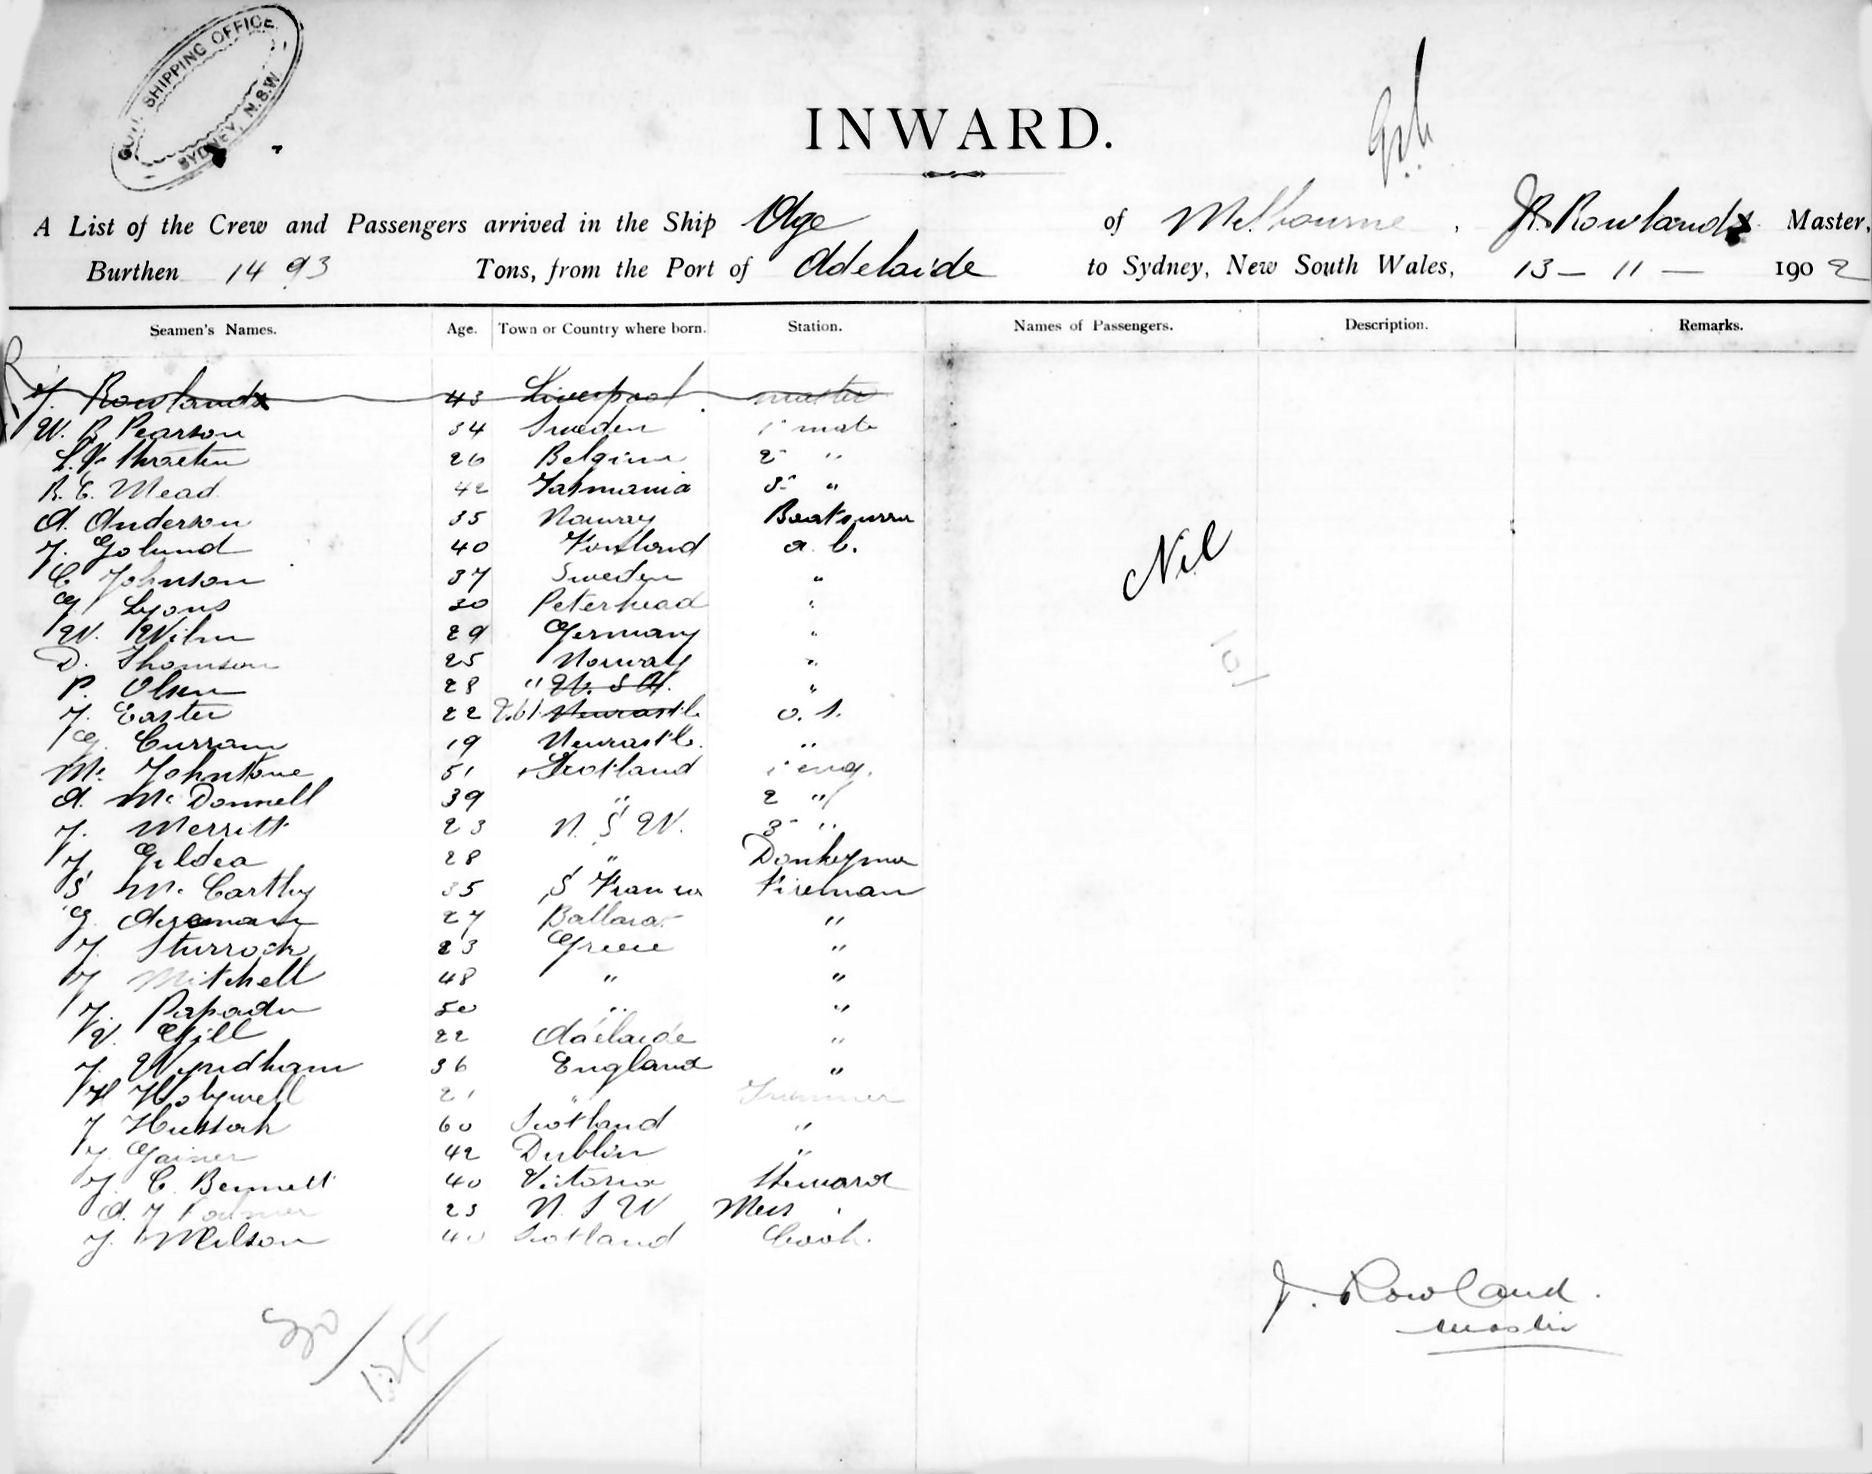 GOVT. SHIPPING OFFICE
SYDNEY, N.S.W.
INWARD.
A List of the Crew and Passengers arrived in the Ship Age of Melbourne, J. Rowlands Master,
Burthen 1493 Tons, from the Port of Adelaide to Sydney, New South Wales, 13 - 11 - 1902
Seamen's Names. Age. Town or Country where born. Station. Names of Passengers. Description. Remarks.
J. Rowlands 43 Liverpool master
W. B. Pearson 34 Sweden 1 mate
26 Belgium 2 "
R. E. Mead 42 Tasmania 3 "
A. Anderson 35 Norway Boatswain
J. Golund 40 a. b.
C Johnson 37 Sweden "
G Lyons 30 Peterhead "
W. Wilm 29 Germany "
D. Thomson 25 Norway "
P. Olsen 28 " "
J. Easter 22 Newcastle o. s.
G. Curram 19 Newcastle "
M. Johnstone 51 Scotland 1 eng.
A. McDonnell 39 " 2 "
J. Merritt 23 N. S W. 3 "
J Gildea 28 " Donkeyman
S McCarthy 35 S Francisco Fireman
G. 27 Ballarat "
J. Sturrock 23 Greece "
J Mitchell 48 " "
J. Papadu 50 " "
W. Gill 22 Adelaide "
J. Wyndham 36 England "
H Holywell 21 " Trimmer
J 60 Scotland "
J. Gainer 42 Dublin "
J. C. Bennett 40 Victoria Steward
A. J 23 N. S W Mess
J. Wilson 40 Scotland Cook.
Nil
J. Rowland.
Master
30/